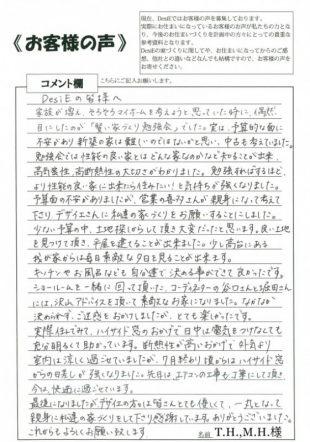 《お客様の声》
現在、DesiEではお客様の声を募集しております。
実際にお住まいになっているお客様の声が私たちの力となり、今後のお住まいづくりを計画中の方々にとっての貴重な参考資料となります。
DesiEの家づくりに関してや、お住まいになってからのご感想、他社との違いなどなんでも結構ですので、お客様の声をお寄せください。
コメント欄
こちらにご記入お願いします。
DesiEの皆様へ
家族が増え、そろそろマイホームを考えようと思っていた時に、偶然
目にしたのが「賢い家づくり勉強会」でした。実は、予算的な面に
不安があり新築の家は難しいのではないかと思い、中古も考えていました。
勉強会では性能の良い家とはどんな家なのかなど知ることが出来、
高気密性、高断熱性の大切さがわかりました。勉強すればするほど、
より性能の良い家に出来たら住みたい!と気持ちが強くなりました。
予算面の不安がありましたが、営業の喜多さんが親身になって考えて
下さり、デザイエさんに私達の家づくりをお願いすることにしました。
少ない予算の中、土地探しからして頂き大変だったと思います。良い土地
を見つけて頂き、平屋を建てることが出来ました。少し高台にある
我が家からは毎日素敵な夕日を見ることが出来ます。
キッチンやお風呂なども自分達で決める事ができて良かったです。
ショールームを一緒に回って頂いた、コーディネーターの谷口さんと堀田さん
には、沢山アドバイスを頂いて素敵なお家になりました。なかなか
決められず、ご迷惑をおかけしましたが、とても楽しかったです。
実際住んでみて、ハイサイド窓のおかげで日中は電気をつけなくても
充分明るくて助かっています。断熱性が高いおかげで外より
室内は涼しく過ごせていましたが、7月終わり頃からはハイサイド窓
からの日差しが強くなりました。先日は、エアコンの工事も丁寧にして頂き
今は、快適に過ごせています。
最後になりましたがデザイエの方は皆さんとても優しくて、一丸となって
親身に私達の家づくりをして下さり感謝しています。ありがとうございました。
これからもよろしくお願い致します
名前 T.H.,M.H.様